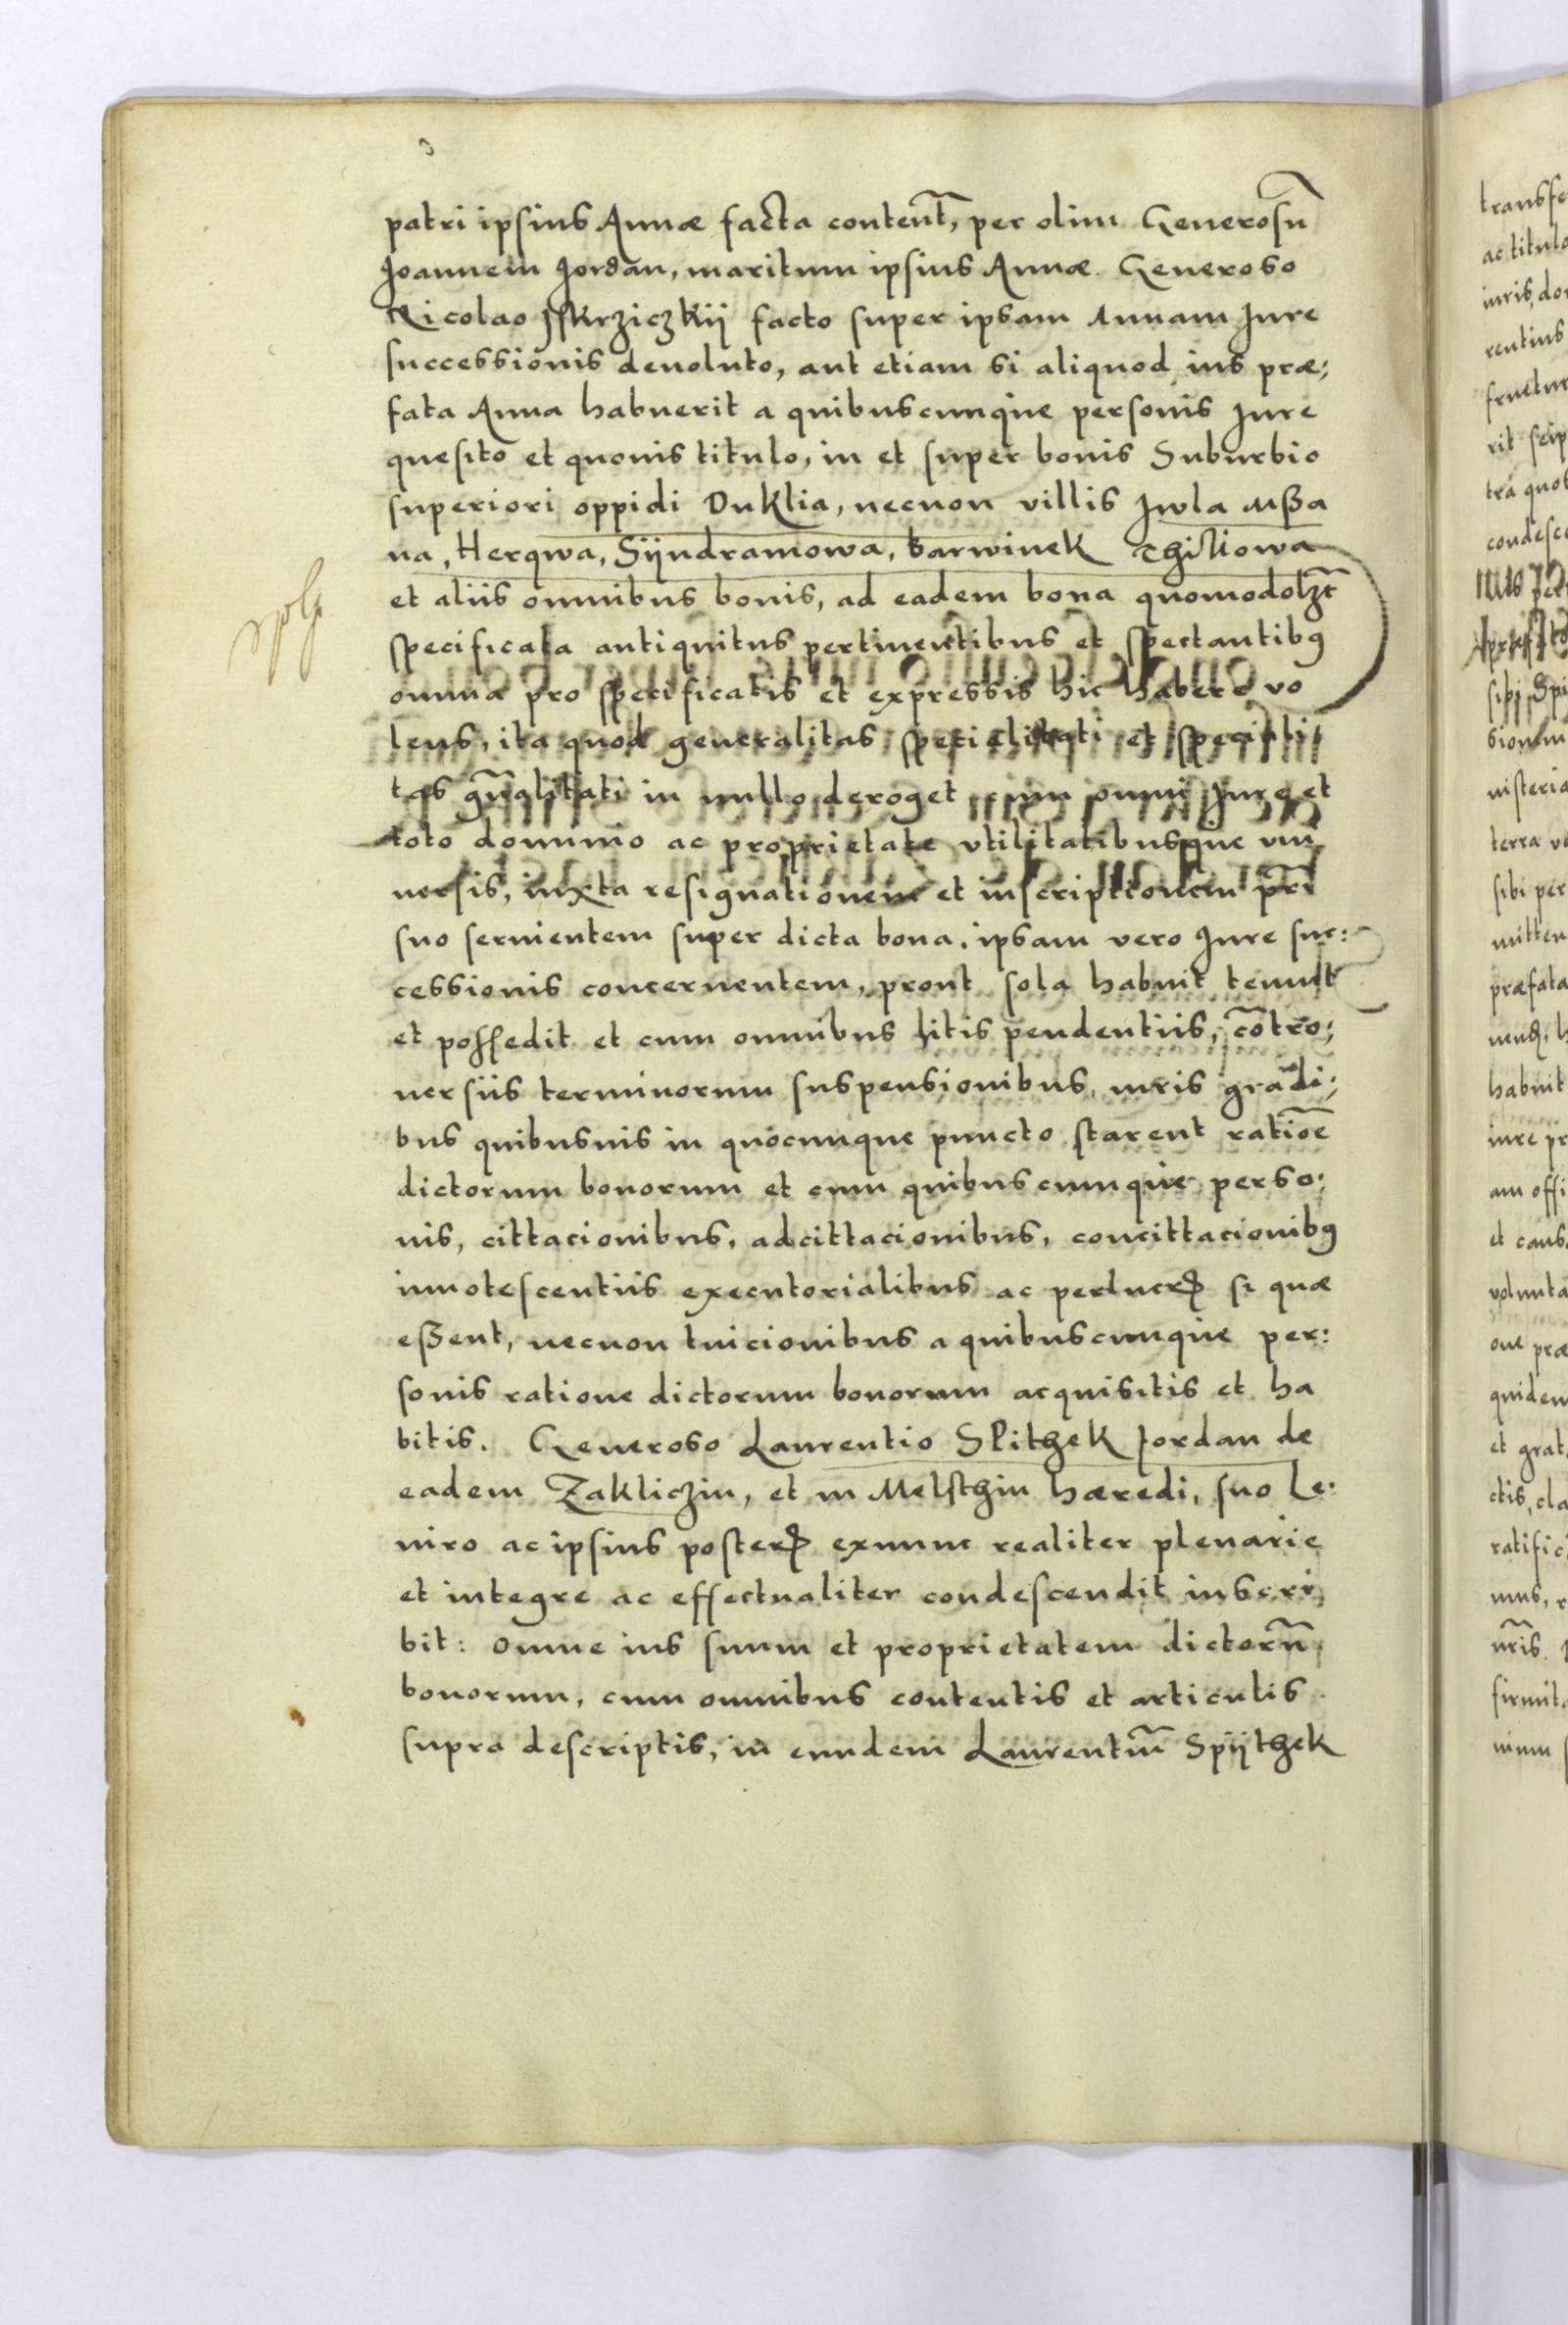 patri ipsius Annæ facta content̃, per olim Generosũ
Joannem Jordan, maritum ipsius Annæ Generoso
Nicolao Jskrziczkij facto super ipsam Annam Jure
successionis deuoluto, aut etiam si aliquod ius præ;
fata Anna habuerit a quibuscunque personis Jure
quesito et quouis titulo, in et super bonis Suburbio
superiori oppidi Duklia, necnon villis Jwla Mßa
na, Herqwa, Sijndramowa, barwinek Thiliowa
et aliis omnibus bonis, ad eadem bona quomodolzt̃
specificata antiquitus pertinentibus et spectantibꝰ
omnia pro specificatis et expressis hic habere vo
lens, ita quod generalitas specialitati et speciali
tas gñalitati in nullo deroget cum omni Jure et
toto dominio ac proprietate vtilitatibusque vni
uersis, iuxta resignationem et inscriptionem pr̃i
suo seruientem super dicta bona, ipsam vero Jure suc:
cessionis concernentem, prout sola habuit tenuit
et possedit et cum omnibus litis pendentiis, cõtro;
uersiis terminorum suspensionibus, iuris gradi;
bus quibusuis in quocunque puncto starent ratiõe
dictorum bonorum et cum quibuscunque perso;
nis, cittacionibus, adcittacionibus, concittacionibꝰ
innotescentiis executorialibus ac perlucrꝭ si quæ
eßent, necnon tuicionibus a quibuscunque per:
sonis ratione dictorum bonorum acquisitis et ha
bitis. Generoso Laurentio SPithek Jordan de
eadem Zakliczin, et in Melsthin hæredi, suo Le:
uiro ac ipsius posterꝭ exnunc realiter plenarie
et integre ac effectualiter condescendit inscri
bit: omne ius suum et proprietatem dictorũ
bonorum, cum omnibus contentis et articulis
supra descriptis, in eundem Laurentiũ Spijthek